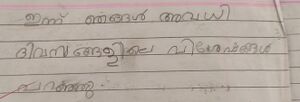 ഇന്ന് ഞങ്ങൾ അവധി
ദിവസങ്ങളിലെ വിശേഷങ്ങൾ
പറഞ്ഞു.